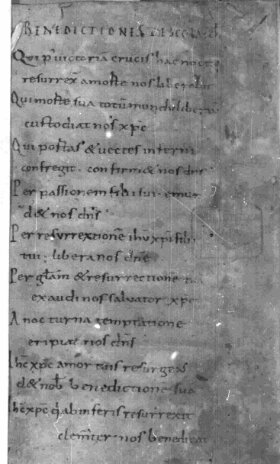 BENEDICTIONES
Qui p victoria crucis hac nocte
resurrex amorte nos liber
Qui morte sua totum mundu liber
custodiat nos xpc
Qui portas & vectes inferni
confregit confirm & nos dns
Per passionem filii sui emun
d& nos dns
Per resurrectione ihu xpi filii
tui libera nos dne
Per głam & resurrectione
exaudi nos salvator xpc
A nocturna temptatione
eripiat nos dns
Ihc xpc amortuis resurgens
d& nob benedictione sua
Ihc xpc q ab inferis resurrexit
clementer nos benedicat